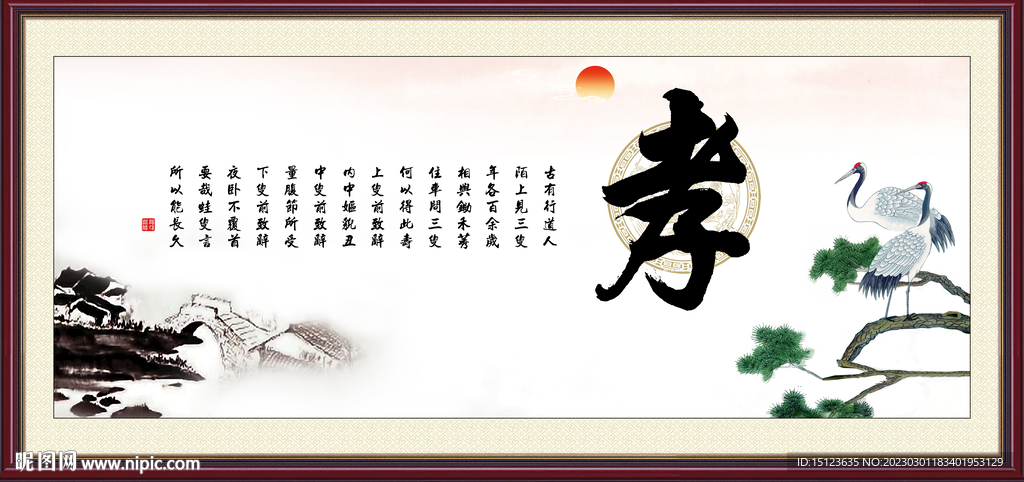 孝
古有行道人
陌上見三叟
年各百余歲
相與鋤禾莠
住車問三叟
何以得此壽
上叟前致辭
内中嫗貌丑
中叟前致辭
量腹節所受
下叟前致辭
夜卧不覆首
要哉蛙叟言
所以能長久
昵图网 www.nipic.com
ID:15123635 NO:20230301183401953129